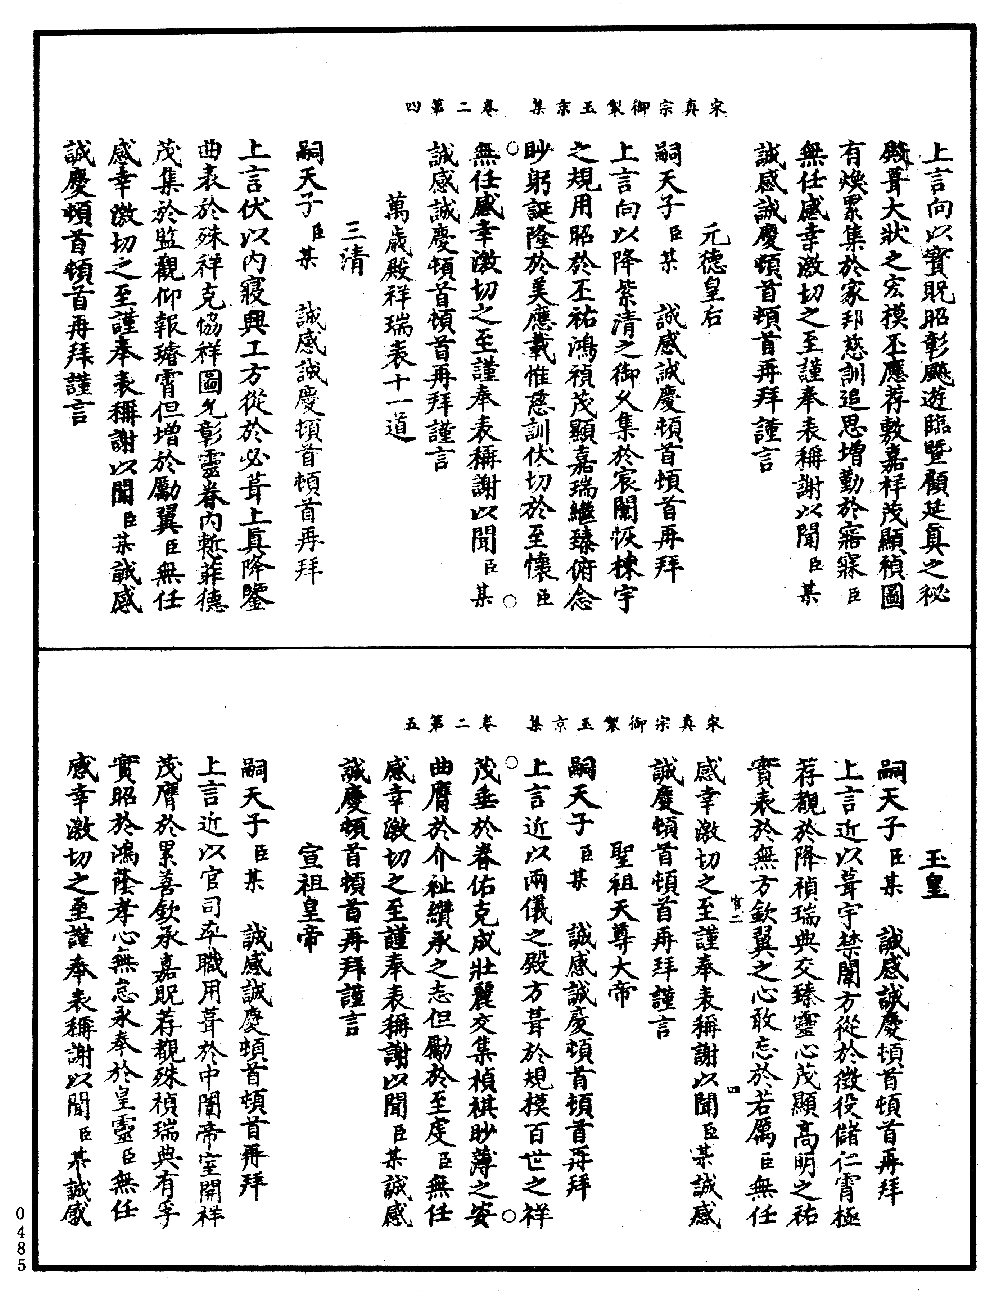 宋真宗御製玉京集　卷二第四
上言向以寶貺昭彰飈遊臨暨顧延真之祕
殿葺大狀之宏模丕應荐敷嘉祥茂顯禎圖
有煥累集於家邦慈訓追思增勤於寤寐臣
無任感幸激切之至謹奉表稱謝以聞臣某
誠感誠慶頓首頓首再拜謹言
元德皇后
嗣天子臣某　誠感誠慶頓首頓首再拜
上言向以降紫清之御爰集於宸闈恢棟宇
之規用昭於丕祐鴻禎茂顯嘉瑞繼臻俯念
眇躬誕隆於美應載惟慈訓伏切於至懷臣
無任感幸激切之至謹奉表稱謝以聞臣某
誠感誠慶頓首頓首再拜謹言
萬歲殿祥瑞表十一道
三清
嗣天子臣某　誠感誠慶頓首頓首再拜
上言伏以內寢興工方從於必葺上真降鑒
曲表於殊祥克協祥圖允彰靈眷內慙菲德
茂集於監觀仰報璿霄但增於勵翼臣無任
感幸激切之至謹奉表稱謝以聞臣某誠感
誠慶頓首頓首再拜謹言
宋真宗御製玉京集　卷二第五
玉皇
嗣天子臣某　誠感誠慶頓首頓首再拜
上言近以葺宇禁闈方從於徵役儲仁霄極
荐觀於降禎瑞典交臻靈心茂顯高明之祐
實表於無方欽翼之心敢忘於若厲臣無任
感幸激切之至謹奉表稱謝以聞臣某誠感
誠慶頓首頓首再拜謹言
官二　四
聖祖天尊大帝
嗣天子臣某　誠感誠慶頓首頓首再拜
上言近以兩儀之殿方葺於規模百世之祥
茂垂於眷佑克成壯麗交集禎祺眇薄之姿
曲膺於介祉纘承之志但勵於至虔臣無任
感幸激切之至謹奉表稱謝以聞臣某誠感
誠慶頓首頓首再拜謹言
宣祖皇帝
嗣天子臣某　誠感誠慶頓首頓首再拜
上言近以官司率職用葺於中闈帝室開祥
茂膺於累善欽承嘉貺荐觀殊禎瑞典有孚
實昭於鴻蔭孝心無怠永奉於皇靈臣無任
感幸激切之至謹奉表稱謝以聞臣某誠感
0485